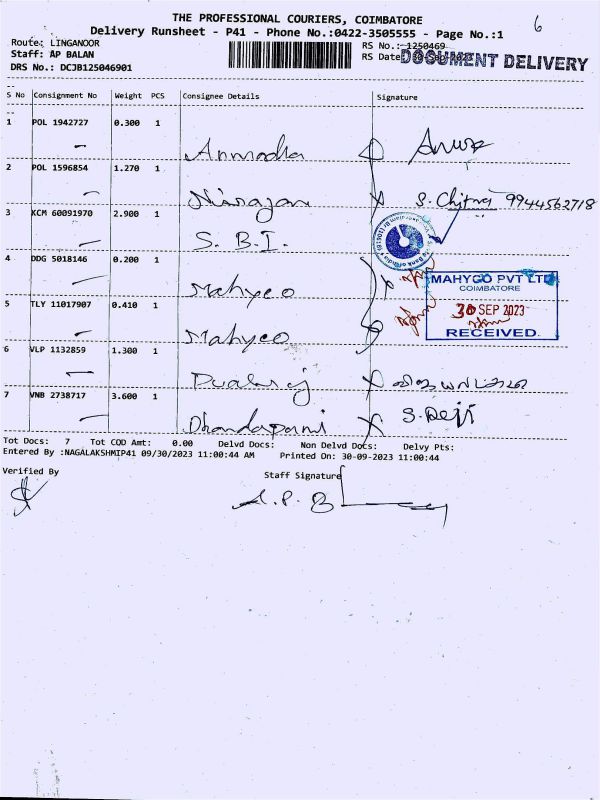 THE PROFESSIONAL COURIERS, COIMBATORE
6
Delivery Runsheet - P41 - Phone No.:0422-3505555 - Page No.:1
Route: LINGANOOR
RS No.: 1250469
Staff: AP BALAN
RS Date: 30-Sep-2023
DOCUMENT DELIVERY
DRS No.: DCJB125046901
S No Consignment No Weight PCS Consignee Details Signature
1 POL 1942727 0.300 1
2 POL 1596854 1.270 1
Nirajan S. Chitra 9944562718
3 KCM 60091970 2.900 1
S. B. I.
4 DDG 5018146 0.200 1
Mahyco
MAHYCO PVT LTD
COIMBATORE
5 TLY 11017907 0.410 1
30 SEP 2023
Mahyco
RECEIVED.
6 VLP 1132859 1.300 1
7 VNB 2738717 3.600 1
Dhandapani S. Devi
Tot Docs: 7 Tot COD Amt: 0.00 Delvd Docs: Non Delvd Docs: Delvy Pts:
Entered By :NAGALAKSHMIP41 09/30/2023 11:00:44 AM Printed On: 30-09-2023 11:00:44
Verified By
Staff Signature
A. P. B